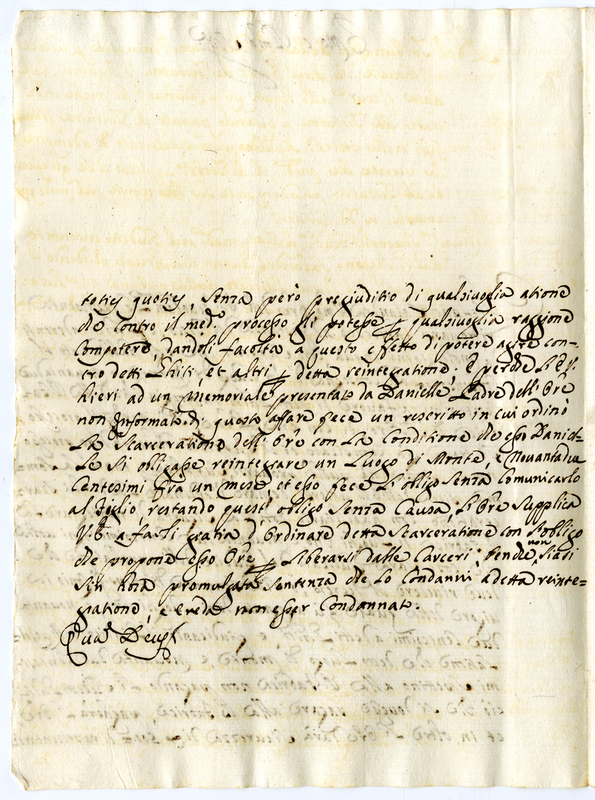 toties quoties, senza però pregiuditio di qualsivoglia atione
che contro il med.º processo gli potesse p qualsivoglia raggione
Competere, dandoli facoltà a questo effetto di potere agire con-
tro detti Chiti, et altri p detta reintegratione; E perche
hieri ad un Memoriale presentato da Danielle Padre dell'Ore
non Informato di questo affare fece un rescritto in cui ordinò
La Scarceratione dell'Ore con La Conditione che esso Daniel-
Le si obligasse reintegrare un Luogo di Monte, e Novantadue
Centesimi fra un mese, et esso fece L'obligo senza Comunicarlo
al Figlio restando quest'obligo senza Causa, L'Ore supplica
V.S. a farli gratia d'ordinare detta Scarceratione con L'obligo
che propone esso Ore p liberarsi dalle Carceri, benche non siasi
sin hora promulgata sentenza che Lo Condanni a detta reinte-
gratione, e creda non esser Condannato.
Qua Deus